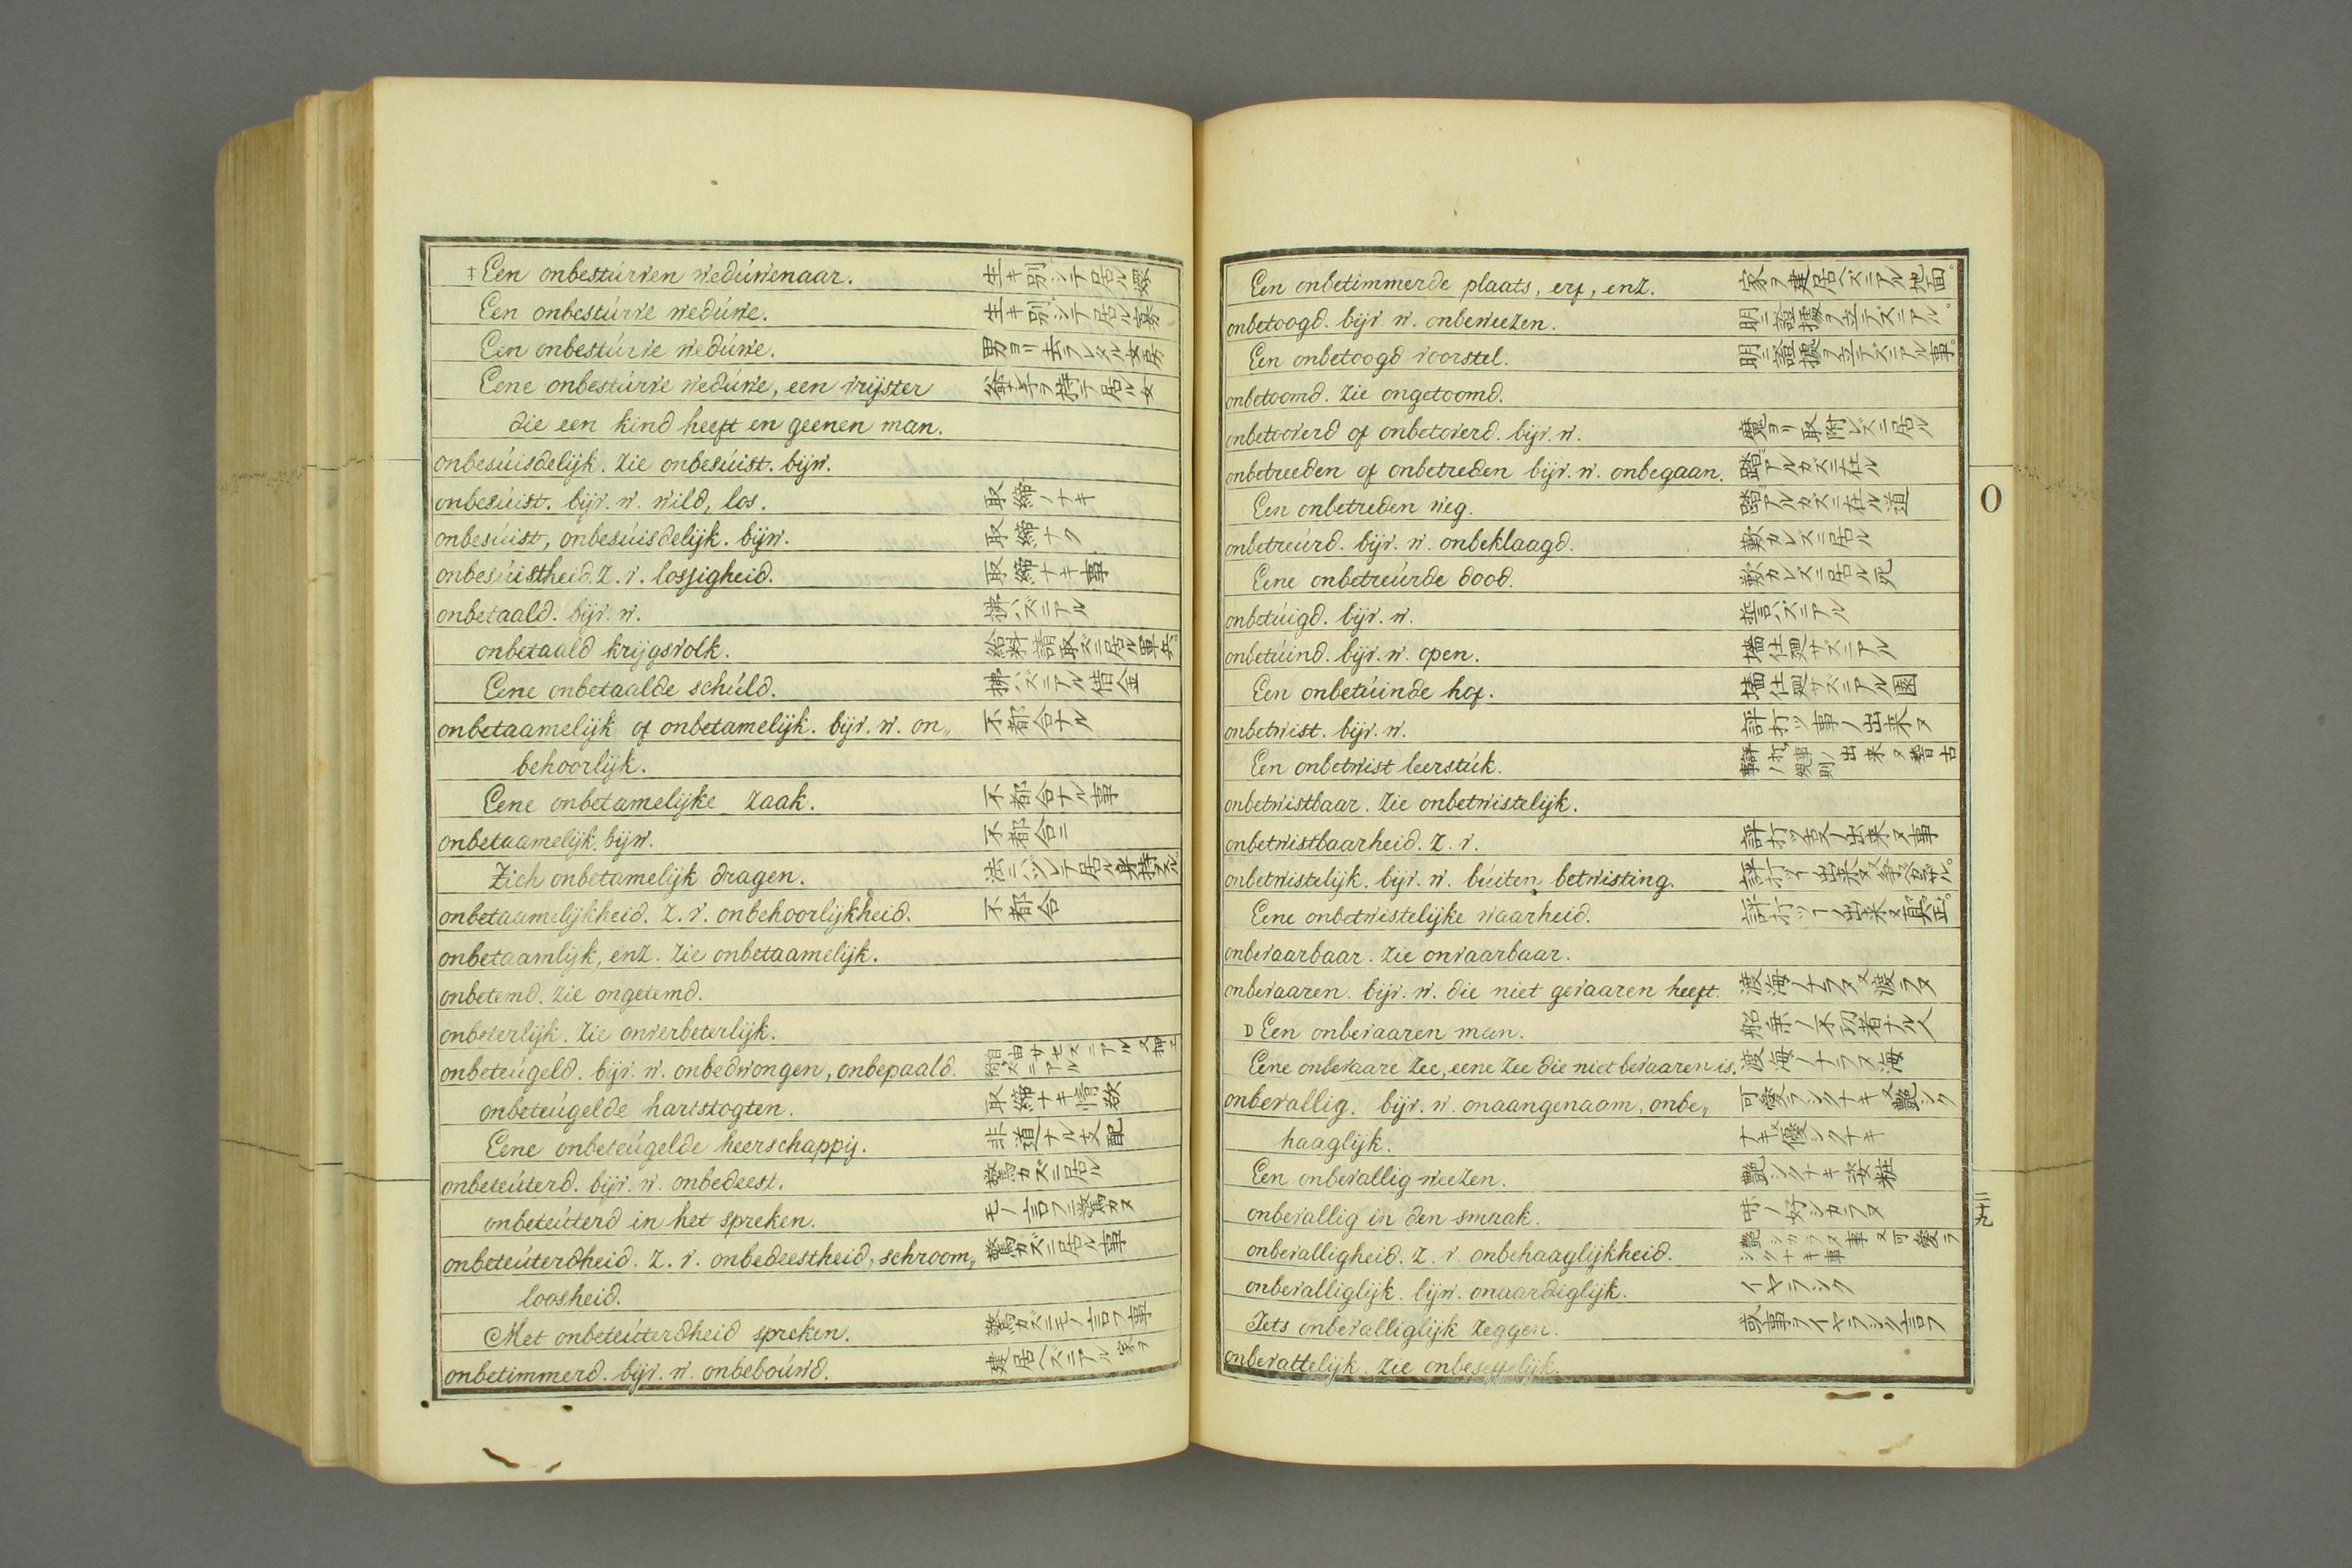 ‡ Een onbestúrven wedúwenaar. 生キ別シテ居ル鰥
Een onbestúrve wedúwe. 生キ別シテ居ル寡
Een onbestúrve wedúwe. 男ヨリ去ラレタル女房
Eene onbestúrve wedúwe, een vrijster 爺无子ヲ持テ居ル女
die een kind heeft en geenen man.
onbesúisdelijk. zie onbesúist. bijw.
onbesúist. bijv. w. wild, los. 取締ノナキ
onbesúist, onbesúisdelijk. bijw. 取締ナク
onbesúistheid. z. v. lossigheid. 取締ナキ事
onbetaald. bijv. w. 拂ハズニアル
onbetaald krijgsvolk. 給料請取ズニ居ル軍兵。
Eene onbetaalde schúld. 拂ハズニアル借金
onbetaamelijk of onbetamelijk. bijv. w. on„ 不都合ナル
behoorlijk.
Eene onbetamelijke zaak. 不都合ナル事
onbetaamelijk. bijw. 不都合ニ
Zich onbetamelijk dragen. 法ニハツレテ居ル身持スル
onbetaamelijkheid. z. v. onbehoorlijkheid. 不都合
onbetaamlijk, enz. zie onbetaamelijk.
onbetemd. zie ongetemd.
onbeterlijk. zie onverbeterlijk.
onbeteúgeld. bijv. w. onbedwongen, onbepaald.
onbeteúgelde hartstogten. 取締ナキ情欲
Eene onbeteúgelde heerschappij. 非道ナル支配
onbeteúterd. bijv. w. onbedeest. 驚カズニ居ル
onbeteúterd in het spreken. モノ言フニ驚カヌ
onbeteúterdheid. z. v. onbedeestheid, schroom„ 驚カズニ居ル事
loosheid.
Met onbeteúterdheid spreken. 驚カズニモノ言フ事
onbetimmerd. bijv. w. onbeboúwd. 建居ヘズニアル家ヲ
Een onbetimmerde plaats, erf, enz. 家ヲ建居ヘズニアル地面。
onbetoogd. bijv. w. onbeweezen. 明ニ證據ヲ立テズニアル。
Een onbetoogd voorstel. 明ニ證據ヲ立テズニアル事。
onbetoomd. zie ongetoomd.
onbetooverd of onbetoverd. bijv. w. 魔ヨリ取附レズニ居ル
onbetreeden of onbetreden bijv. w. onbegaan. 踏アルカズニ在ル
Een onbetreden weg. 踏アルカズニ在ル道
onbetreúrd. bijv. w. onbeklaagd. 歎カレズニ居ル
Eene onbetreúrde dood. 歎カレズニ居ル死
onbetúigd. bijv. w. 誓言ハズニアル
onbetúind. bijv. w. open. 墻仕廻サズニアル
Een onbetúinde hof. 墻仕廻サズニアル園
onbetwist. bijv. w. 評打ツ事ノ出来ヌ
Een onbetwist leerstúk. 評打ツ事ノ出来ヌ稽古事ノ規則
onbetwistbaar. zie onbetwistelijk.
onbetwistbaarheid. z. v.
onbetwistelijk. bijv. w. búiten betwisting.
Eene onbetwistelijke waarheid. 評打ツヿノ出来ヌ真正。
onbevaarbaar. zie onvaarbaar.
onbevaaren. bijv. w. die niet gevaaren heeft. 渡海ノナラヌ又渡ラヌ
D Een onbevaaren man. 船乗ノ不功者ナル人
Eene onbevaare zee, eene zee die niet bevaaren is. 渡海ノナラヌ海
onbevallig. bijv. w. onaangenaam, onbe„ 可愛ラシクナキ又艶シク
haaglijk. ナキ又優シクナキ
Een onbevallig weezen. 艶シクナキ姿粧
onbevallig in den smaak. 味ノ好シカラヌ
onbevalligheid. z. v. onbehaaglijkheid. 艶シカラヌ事又可愛ラシクナキ事
onbevalliglijk. bijw. onaardiglijk. イヤラシク
Iets onbevalliglijk zeggen. 或事ヲイヤラシク言フ
onbevattelijk. zie onbeseffelijk.
O
二十九